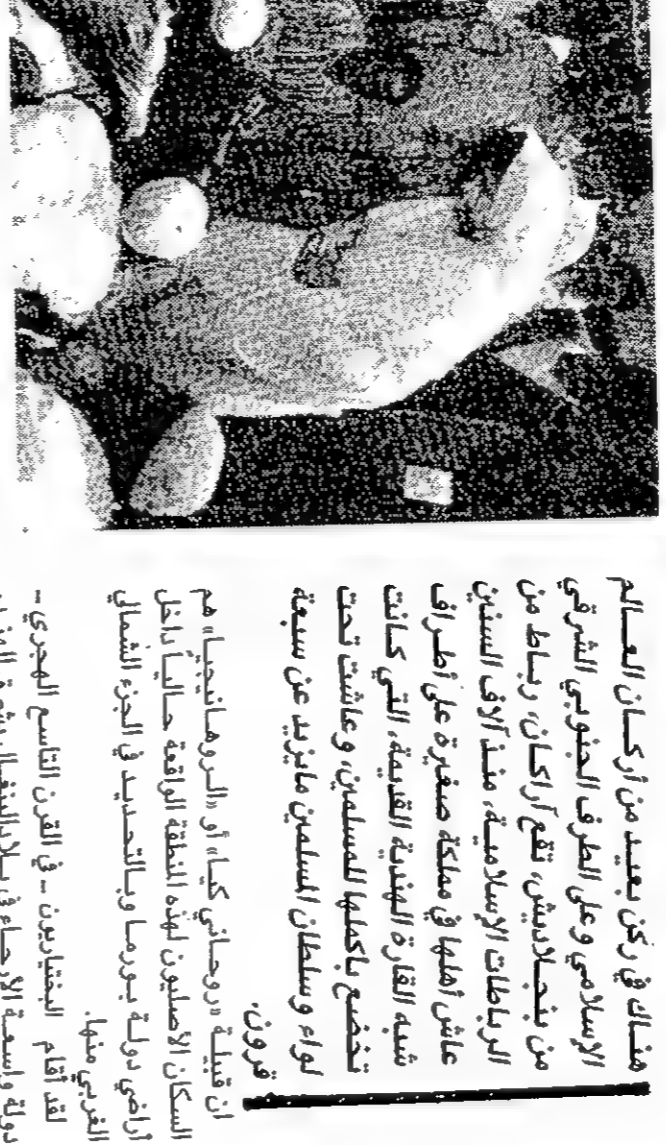 هناك في ركن بعيد من أركان العالم
الإسلامي وعلى الطرف الجنوبي الشرقي
من بنجلاديش، تقع آراكان، رباط من
الرباطات الإسلامية، منذ آلاف السنين
عاش أهلها في مملكة صغيرة على أطراف
شبه القارة الهندية القديمة، التي كانت
تخضع بأكملها للمسلمين، وعاشت تحت
لواء وسلطان المسلمين مايزيد عن سبعة
قرون.
ان قبيلة «روحاني كيا» أو «الروهانيجيا» هم
السكان الأصليون لهذه المنطقة الواقعة حالياً داخل
أراضي دولة بورما وبالتحديد في الجزء الشمالي
الغربي منها.
لقد أقام البختياريون - في القرن التاسع الهجري -
دولة واسعة الأرجاء في بلاد البنغال